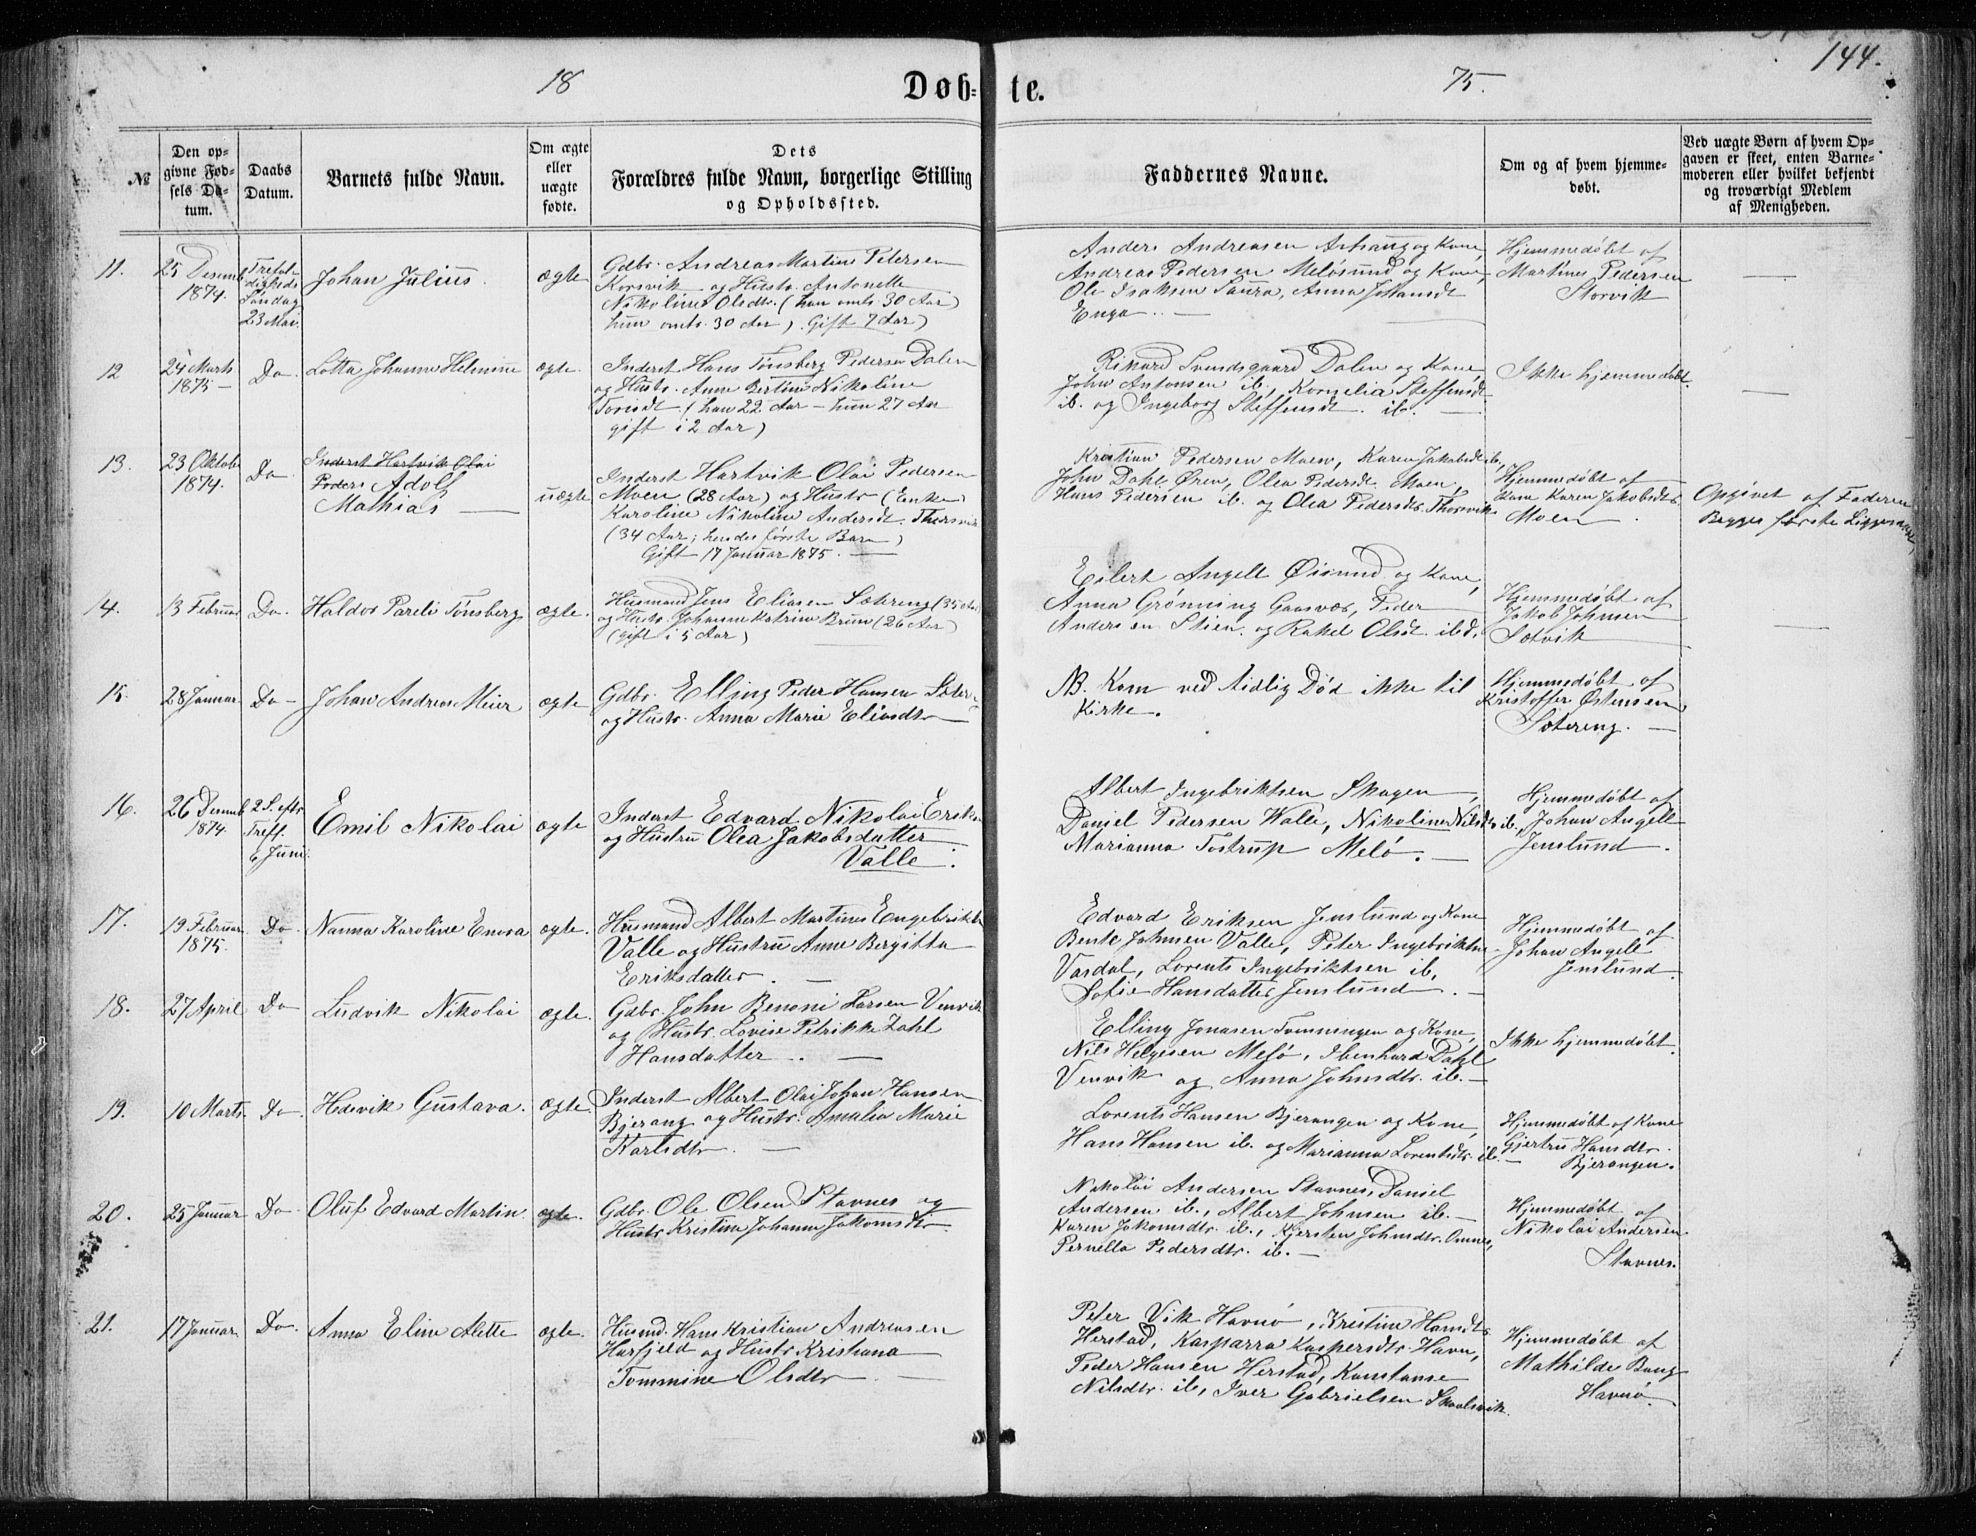 144.
18 Døb=te. 75.
№
Den op-
givne Fød-
sels Da-
tum.
Daabs
Datum.
Barnets fulde Navn.
Om ægte
eller
uægte
fødte.
Dets
Forældres fulde Navn, borgerlige Stilling
og Opholdssted.
Faddernes Navne.
Om og af hvem hjemme-
døbt.
Ved uægte Børn af hvem Op-
gaven er skeet, enten Barne-
moderen eller hvilket bekjendt
og troværdigt Medlem
af Menigheden.
11.
25 Desemb
1874.
Trefol-
digheds
Søndag
23 Mai.
Johan Julius.
ægte
Gdbr. Andreas Martin Petersen
Korsvik og Hustr. Antonette
Nikoline Olsdtr. (han omtr. 30 Aar)
hun omtr. 30 Aar). Gift 7 Aar)
Anders Andreasen og Kone,
Andreas Pedersen Meløsund og Kone,
Ole Isaksen Saura, Anna Johansdt
Enga. —
Hjemmedøbt af
Martines Pedersen
Storvik
—
12
24 Marts
1875 —
Do.
Lotta Johanna Helmine
ægte.
Inderst Hans Tønsberg Pedersen Dalen
og Hustr. Anne Bertine Nikoline
Torisdt. (han 22 Aar — hun 27 Aar
gift i 2 Aar)
Rikard Svendsgaard Dalen og Kone,
John Antonsen ib., Kornelia Steffensdt
ib. og Ingeborg Steffensdt. ib. —
Ikke hjemmedøbt.
—
13.
23 Oktob.
1874.
Do
Inderst Hartvik Olai
Peders Adolf
Mathias —
uægte
Inderst Hartvik Olai Pedersen
Moen (28 Aar) og Hustr (Enke
Karoline Nikoline Andersdt. Thorsvik
(34 Aar; hendes første Barn)
Gift 17 Januar 1875. —
Kristian Pedersen Moen, Karen Jakobsdt ib,
John Dahl Øren, Olea Pedersdt. Moen,
Hans Pedersen ib. og Olea Pedersdtr. Thorsvik
Hjemmedøbt af
Kone Karen Jakobsdtr.
Moen.
Opgivet af Faderen
Begges første
14.
13 Februar
Do.
Haldor Pareli Tønsberg
ægte.
Husmand Jens Eliasen Sætreng (35 Aar)
og Hustr. Johanne Katrine Bruun (26 Aar)
(gift i 5 Aar)
Eilert Angell Øisund og Kone,
Anna Grønning Gaasvær, Peder
Andersen Stien. og Rakel Olsdt. ibd.
Hjemmedøbt af
Jakob Johnsen
Sotvik
—
15.
28 Januar.
Do —
Johan Andreas Meier
ægte
Gdbr. Elling Peder Hansen
og Hustr. Anna Marie Eliasdtr
NB. Kom ved tidlig Død ikke til
Kirke.
Hjemmedøbt af
Kristoffer Østensen
Sætereng. —
16.
26 Desemb
1874.
2 S. eftr
Tref.
6 Juni.
Emil Nikolai
ægte
Inderst Edvard Nikolai Eriks
og Hustru Olea Jakobsdatter
Valle.
Albert Ingebriktsen Skagen,
Daniel Pedersen Walle, Nikoline Nilsdtr ib.,
Marianna Tostrup Melø. —
Hjemmedøbt af
Johan Angell
Jenslund.
17.
19 Februar
1875.
Do
Nanna Karoline Enora
ægte.
Husmand Albert Martines Engebrikts
Valle og Hustru Anne Bergitta
Eriksdatter. —
Edvard Eriksen Jenslund og Kone
Bente Johnsen Valle, Peter Ingebriktsen
Vasdal, Lorents Ingebriktsen ib,
Sofie Hansdatter Jenslund. —
Hjemmedøbt af
Johan Angell
Jenslund.
18.
27 April
Do
Ludvik Nikolai
ægte.
Gdbr. John Benoni Larsen Venvik
og Hustr. Lovise Petrikke Dahl
Hansdatter. —
Elling Jonasen og Kone,
Nils Helgesen Melø, Ibenhard Dahl
Venvik og Anna Johnsdtr. ib. —
Ikke hjemmedøbt.
19.
10 Marts
Do.
Hedevik Gustava.
ægte.
Inderst Albert Olai Johan Hansen
Bjerang og Hustr. Amalia Marie
Karlsdtr. —
Lorents Hansen Bjerangen og Kone,
Hans Hansen ib. og Marianna Lorentsdtr. ib. —
Hjemmedøbt af Kone
Gjertru Hansdtr.
Bjerangen.
20.
25 Januar
Do
Oluf Edvard Martin.
ægte.
Gdbr. Ole Olsen Stavnes og
Hustr Kristina Johanna Jakomsdtr.
Nikolai Andersen Stavnes, Daniel
Andersen ib., Albert Johnsen ib. —
Karen Jakomsdtr. ib., Kjersten Johnsdtr. Omnes,
Pernella Pedersdtr. ib. —
Hjemmedøbt af
Nikolai Andersen
Stavnes.
21.
17 Januar.
Do.
Anna Eline Alette
ægte.
Husmd. Hans Kristian Andreasen
Harfjeld og Hustr Kristiana
Tommine Olsdtr. —
Peter Vik Havnø, Kristine Hansdtr
Herstad, Kasparra Kaspersdtr. Havn,
Peder Hansen Herstad, Konstanse
Nilsdtr. ib, Iver Gabrielsen
Hjemmedøbt af
Mathilde Bang
Havnø.